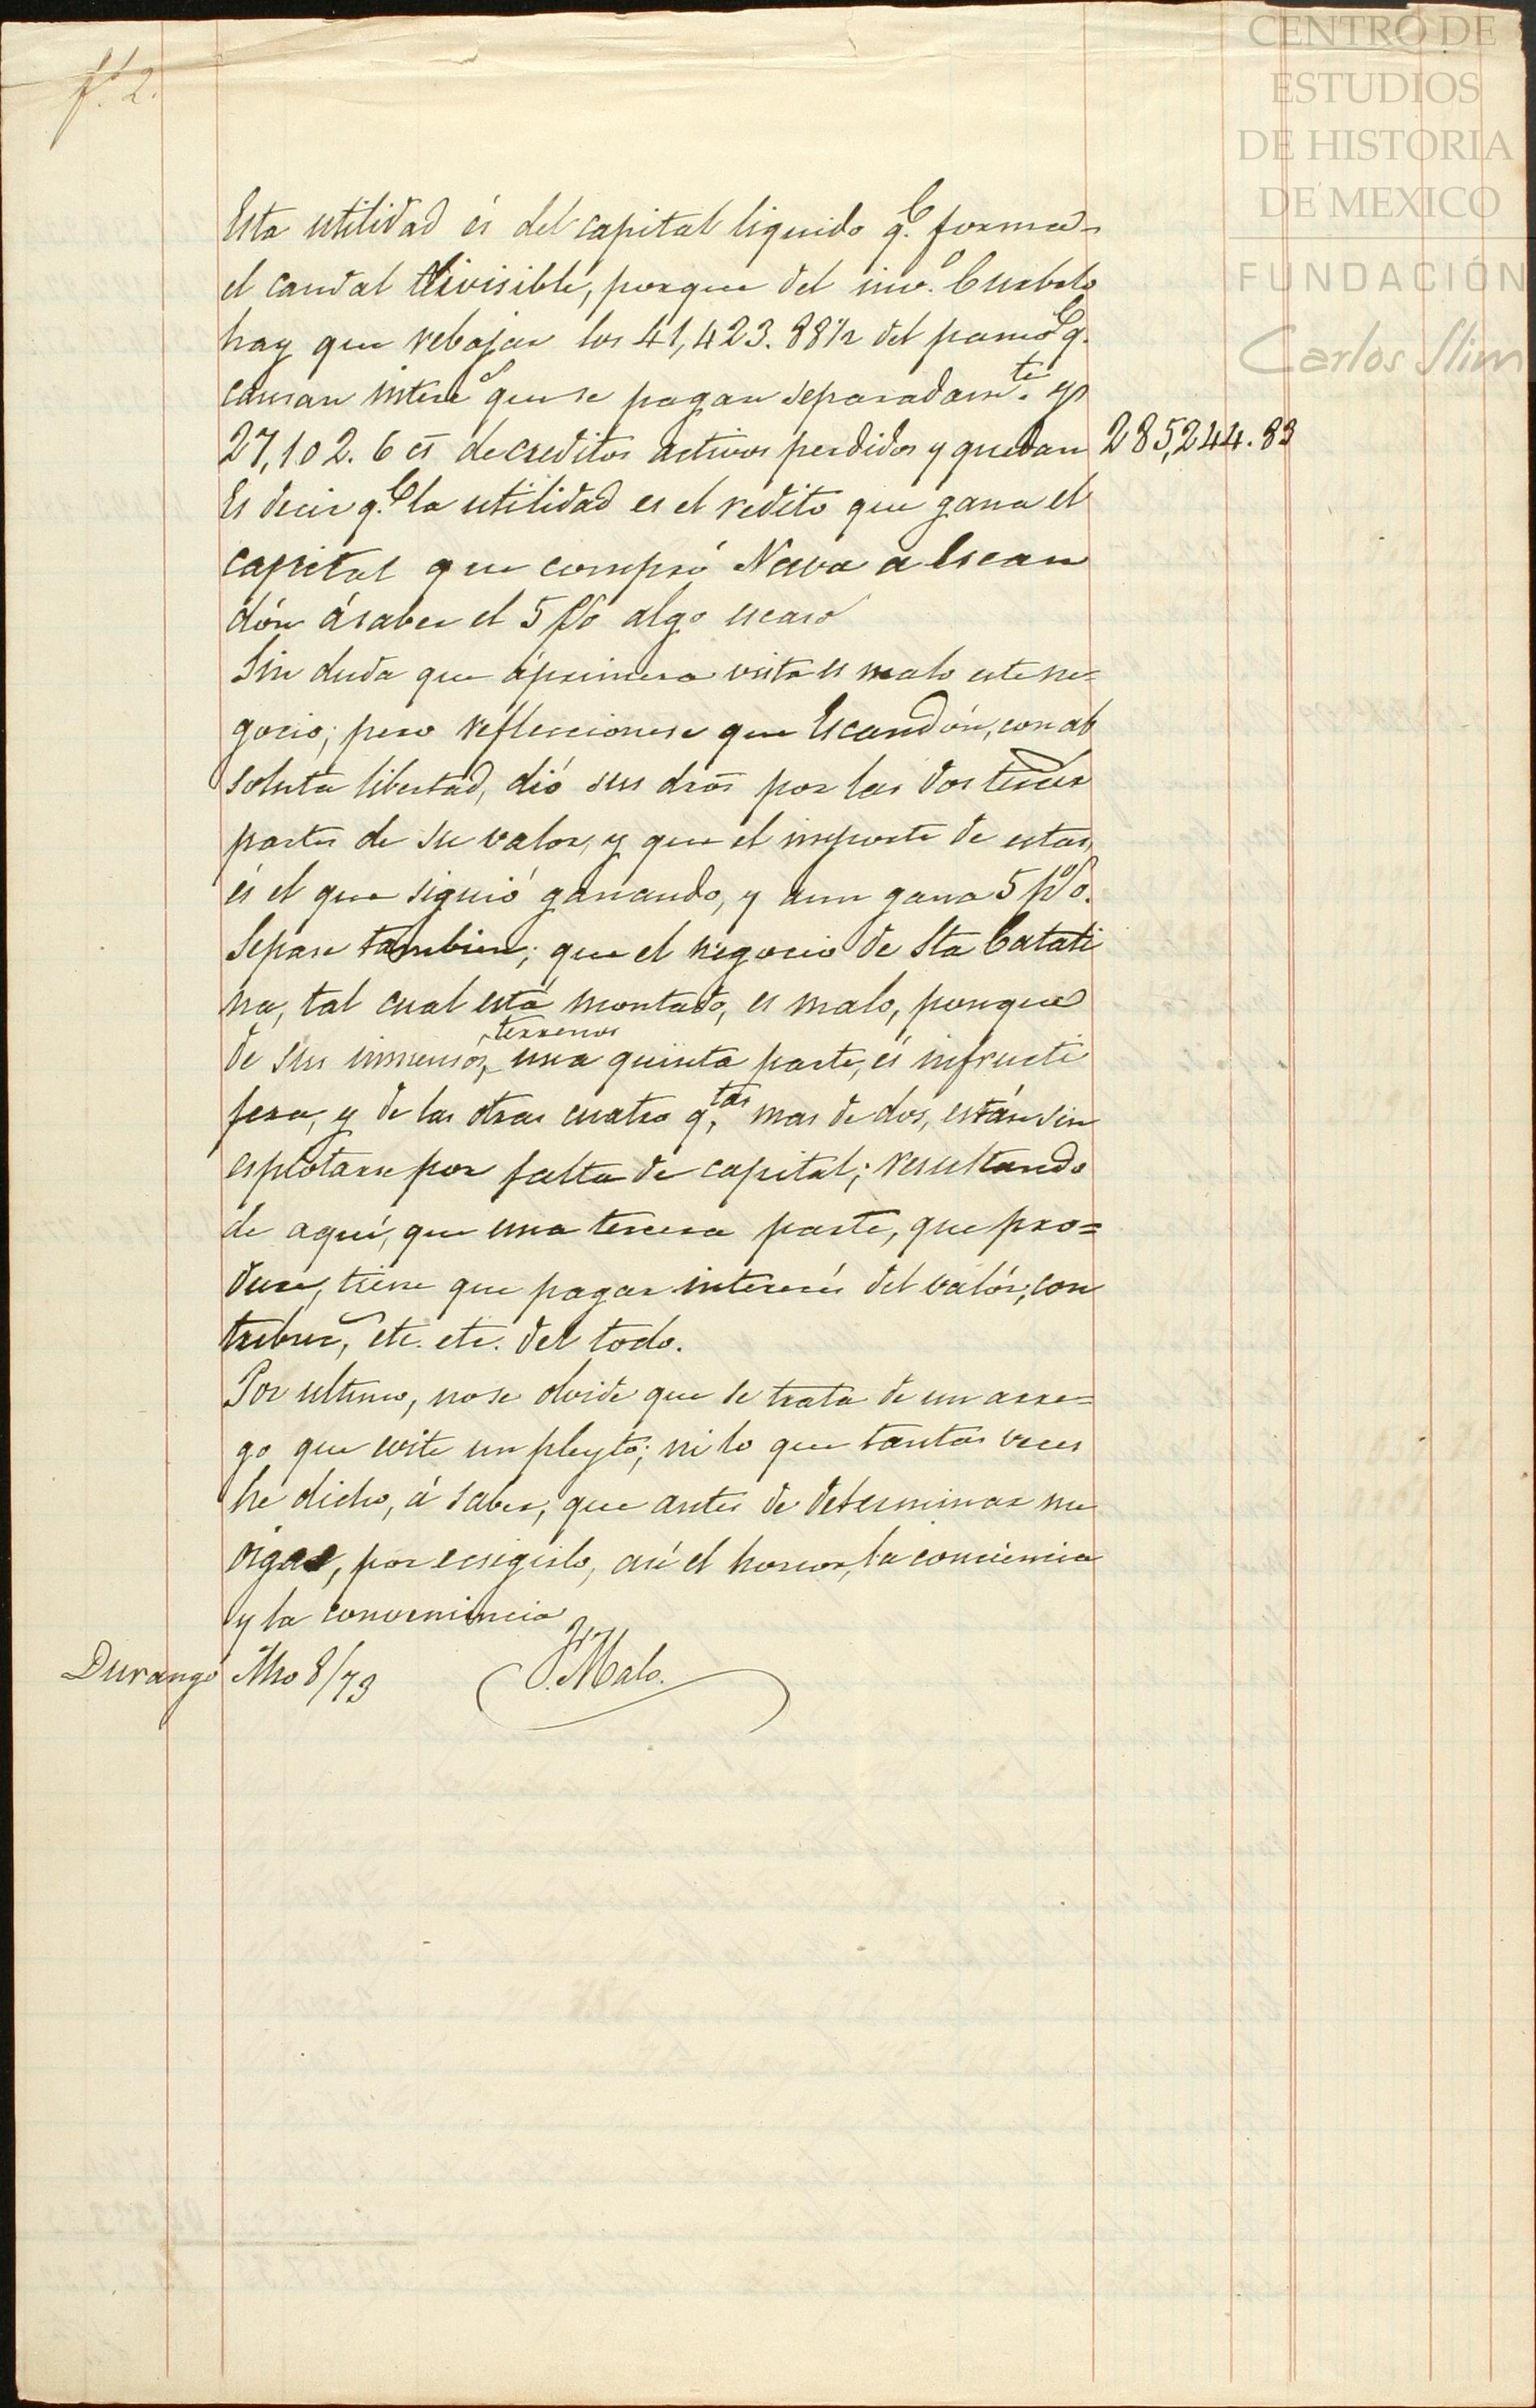 f.l 2.
CENTRO DE
ESTUDIOS
DE HISTORIA
DE MEXICO
FUNDACIÓN
Carlos Slim
Esta utilidad és del capital liquido q.e forma
el caudal divisible, porque del inv.o
hay que rebajar los 41,423.88½ del q.e
causan que se pagan separadam.te y
27,102.6 cs de creditos activos perdidos y quedan 285,244.83
Es decir q.e la utilidad es el redito que gana el
capital que compró Nava a Escan
dón á saber el 5 p% algo escaso
Sin duda que á primera vista es malo este ne=
gocio; pero reflecsionese que Escandón, con ab
soluta libertad, dió sus dros por las dos terceras
partes de su valor, y que el importe de estas,
és el que siguió ganando, y aun gana 5 p%.
Sepase tambien; que el negocio de Sta Catati
na, tal cual está montado, es malo, porque
de sus inmensos terrenos una quinta parte, és infructi
fera, y de las otras cuatro q.tas mas de dos, están sin
esplotarse por falta de capital; resultando
de aquí, que una tercera parte, que pro=
duce, tiene que pagar interés del valór, con
tribuc, etc. etc. del todo.
Por ultimo, no se olvide que se trata de un arre=
go que evite un pleyto; ni lo que tantas veces
he dicho, á saber; que antes de determinar me
oigas, por ecsigirlo, así el honor, la conciencia
y la conveniencia
Durango Mzo 8/73 J. Malo.